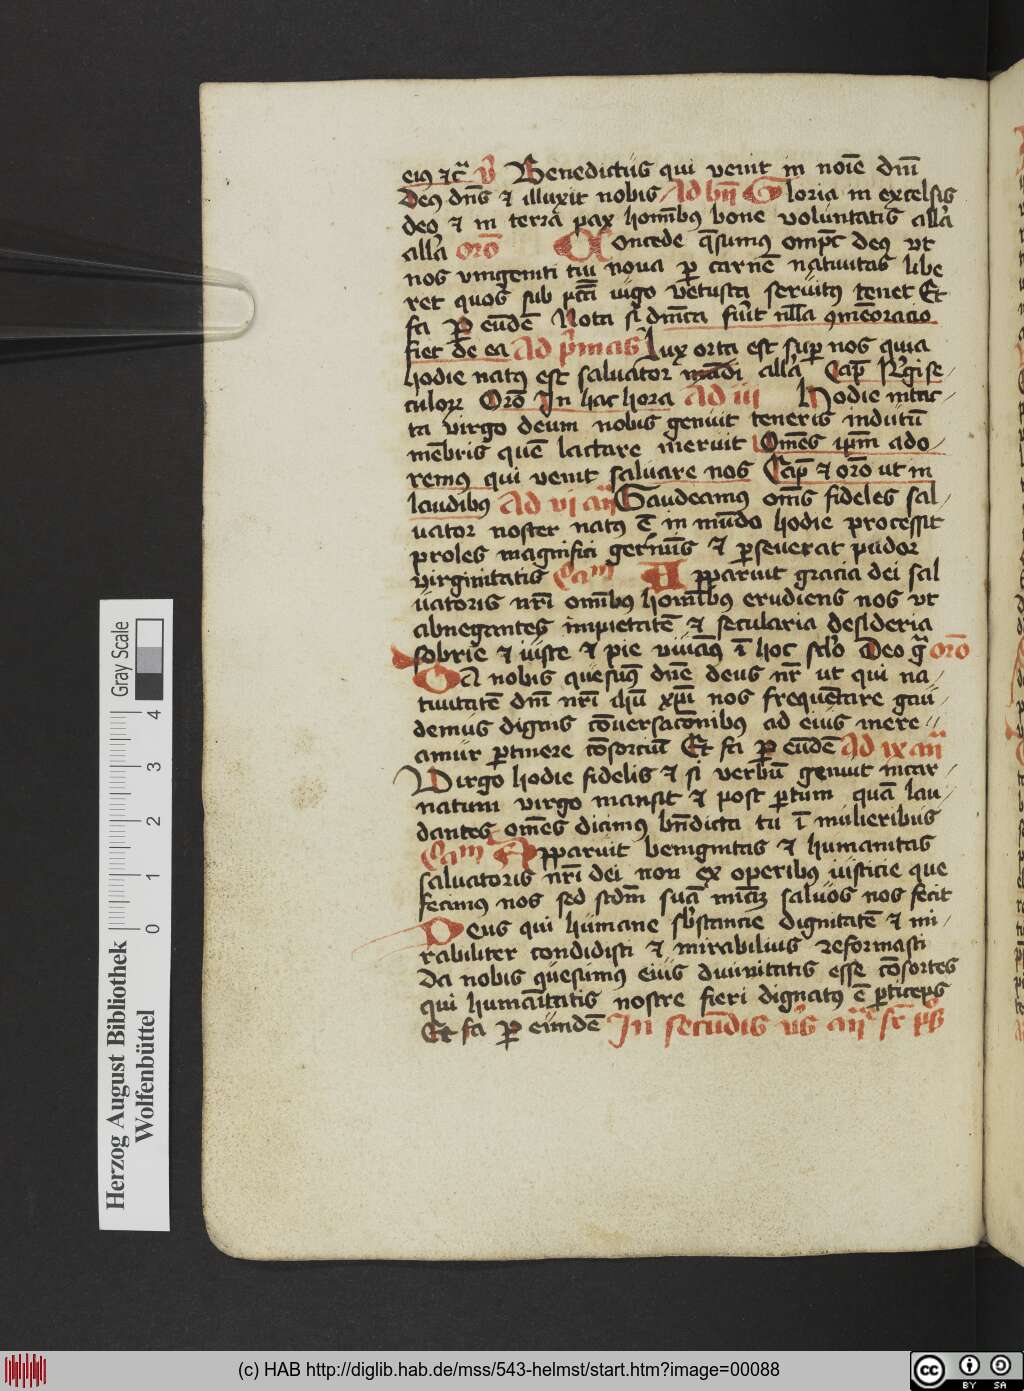 eiꝰ ⁊cͣ v̉ Benedictus qui venit in noı̅e dnı̅
Deꝰ dn̅s ⁊ illuxit nobis Ad bn̅ Gloria in excelsis
deo ⁊ in terra pax homı̅bꝰ bone voluntatis all̉a
all̉a oro̅ Concede q̅sumꝰ omp̅c deꝰ vt
nos vnigeniti tui noua ꝑ carne̅ natiuitas libe
ret quos sub pcc̅i iugo vetusta seruitꝰ tenet Et
fa ꝑ eu̅de̅ Nota si dn̅ica fủit nll̅a ꝯme̅oracio
fiet de ea Ad p̉mas Lux orta est suꝑ nos quia
hodie natꝰ est saluator mu̅di all̉a Cap̅ R̉gi se
culoꝝ Oro̅ In hac hora Ad iii Hodie intac
ta virgo deum nobis genuit teneris indutu̅
me̅bris que̅ lactare meruit Om̅es ip̅m ado
remꝰ qui venit saluare nos Cap̅ ⁊ oro̅ ut in
laudibꝰ Ad vi an̅ Gaudeamꝰ om̅s fideles sal
uator noster natꝰ e̅ in mu̅do hodie processit
proles magnifici ger̉mi̅s ⁊ ꝑseuerat pudor
virginitatis Cam Apparuit gracia dei sal
uatoris nr̅i omı̅bꝰ homı̅bꝰ erudiens nos vt
abnegantes impietate̅ ⁊ secularia desideria
sobrie ⁊ iuste ⁊ pie viua̅ꝰ i̅ hoc sc̅lo Deo gͣ oro̅
Da nobis quesuꝰ dn̅e deus nr̅ ut qui na
tiuitate̅ dn̅i nr̅i ihu̅ xp̅i nos freque̅tare gau
demus dignis co̅uersaco̅nibꝰ ad eius mere
amur ꝑtinere co̅sortiu̅ Et fa ꝑ eu̅de̅ Ad ix an̅
Virgo hodie fidelis ⁊ si verbu̅ genuit incar
natum virgo mansit ⁊ post ꝑtum qua̅ lau
dantes om̅es dicimꝰ bn̅dicta tu i̅ mulieribus
Cam Apparuit benignitas ⁊ humanitas
saluatoris nr̅i dei non ex operibꝰ iusticie que
fecimꝰ nos sed scdm̅ sua̅ mi̅a̅ saluos nos fecit
Deus qui humane sb̉stancie dignitate̅ ⁊ mi
rabiliter condidisti ⁊ mirabilius reformasti
Da nobis quesumꝰ eius diuinitatis esse co̅sortes
qui humaı̅tatis nostre fieri dignatꝰ e̅ ꝑticeps
Et fa ꝑ eu̅nde̅ In secu̅dis vs̉ an̅ sr̅ ps̅
Herzog August Bibliothek
Wolfenbüttel
0 1 2 3 4
Gray Scale
(c) HAB http://diglib.hab.de/mss/543-helmst/start.htm?image=00088
cc BY SA